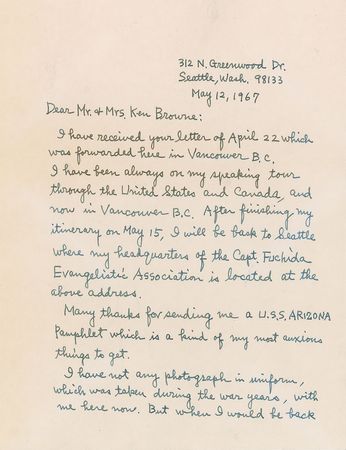 312 N. Greenwood Dr.
Seattle, Wash. 98133
May 12, 1967
Dear Mr. & Mrs. Ken Browne:
I have received your letter of April 22 which
was forwarded here in Vancouver B.C.
I have been always on my speaking tour
through the United States and Canada, and
now in Vancouver B.C. After finishing my
itinerary on May 15, I will be back to Seattle
where my headquarters of the Capt. Fuchida
Evangelistic Association is located at the
above address.
Many thanks for sending me a U.S.S. ARIZONA
Pamphlet which is a kind of my most anxious
things to get.
I have not any photograph in uniform,
which was taken during the war years, with
me here now. But when I would be back